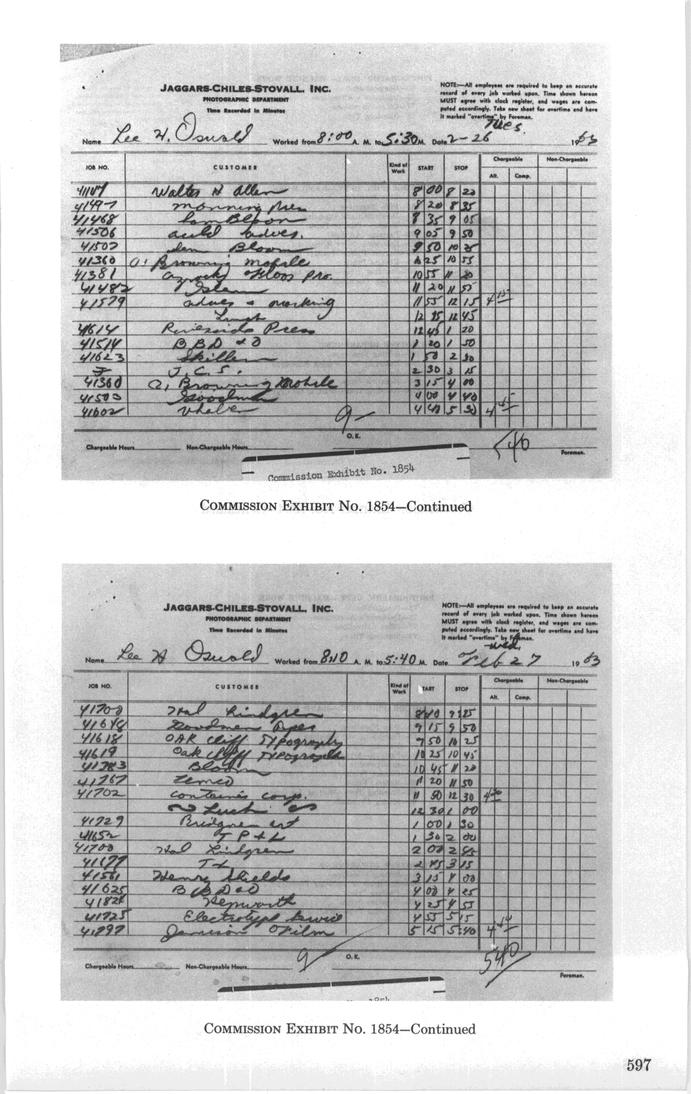 JAGGARS-CHILES-STOVALL, INC.
PHOTOGRAPHIC DEPARTMENT
Time Recorded in Minutes
NOTE:—All employees are required to keep an accurate
record of every job worked upon. Time shown hereon
MUST agree with clock register, and wages are com-
puted accordingly. Take new sheet for overtime and have
it marked "overtime" by Foreman.
Tues.
Name Lee H. Oswald Worked from 8:00 A. M. to 5:30 M. Date 2-26 1963
JOB NO. CUSTOMER Kind of Work START STOP Chargeable Non-Chargeable
Alt. Comp.
Walter H Allen 8 00 8 20
41497 Manning Pres 8 20 8 35
41468 Sam Bloom 8 35 9 05
41506 auld adves. 9 05 9 50
41507 Sam Bloom 9 50 10 25
41360 A. Browning Mobile 10 25 10 55
41381 Floor Pro. 10 55 11 20
41482 11 20 11 55
41579 adves & marking 11 55 12 15 4 15
Lunch 12 15 12 45
41614 Riverside Press 12 45 1 20
41514 BBD & O 1 20 1 50
41623 Skillern 1 50 2 30
J J.C.S. 2 30 3 15
41360 A. Browning Mobile 3 15 4 00
41503 Goodman 4 00 4 40
41602 4 40 5 30 4 45
9
O.K.
540
Chargeable Hours Non-Chargeable Hours Foreman.
Commission Exhibit No. 1854
COMMISSION EXHIBIT No. 1854—Continued
JAGGARS-CHILES-STOVALL, INC.
PHOTOGRAPHIC DEPARTMENT
Time Recorded in Minutes
NOTE:—All employees are required to keep an accurate
record of every job worked upon. Time shown hereon
MUST agree with clock register, and wages are com-
puted accordingly. Take new sheet for overtime and have
it marked "overtime" by Foreman.
Wed.
Name Lee H Oswald Worked from 8:40 A. M. to 5:40 M. Date Feb 27 1963
JOB NO. CUSTOMER Kind of Work START STOP Chargeable Non-Chargeable
Alt. Comp.
41700 Hal Lindgren 8 40 9 15
41648 Goodman 9 15 9 50
41618 OAK Cliff TYPOGRAPHY 9 50 10 25
41619 Oak Cliff TYPOGRAPH 10 25 10 45
41783 Bloom 10 45 11 20
41757 Temco 11 20 11 50
41702 Container corp. 11 50 12 30
Lunch 12 30 1 00
41729 Bridgman art 1 00 1 30
41652 T P & L 1 30 2 00
41700 Hal Lindgren 2 00 2 45
41677 TI 2 45 3 15
41561 Henry Shields 3 15 4 00
41625 BBD&O 4 00 4 25
41824 Hepworth 4 25 4 55
41725 Electrotype Service 4 55 5 15
41797 Jamison Film 5 15 5:40
9
O.K.
540
Chargeable Hours Non-Chargeable Hours Foreman.
COMMISSION EXHIBIT No. 1854—Continued
597